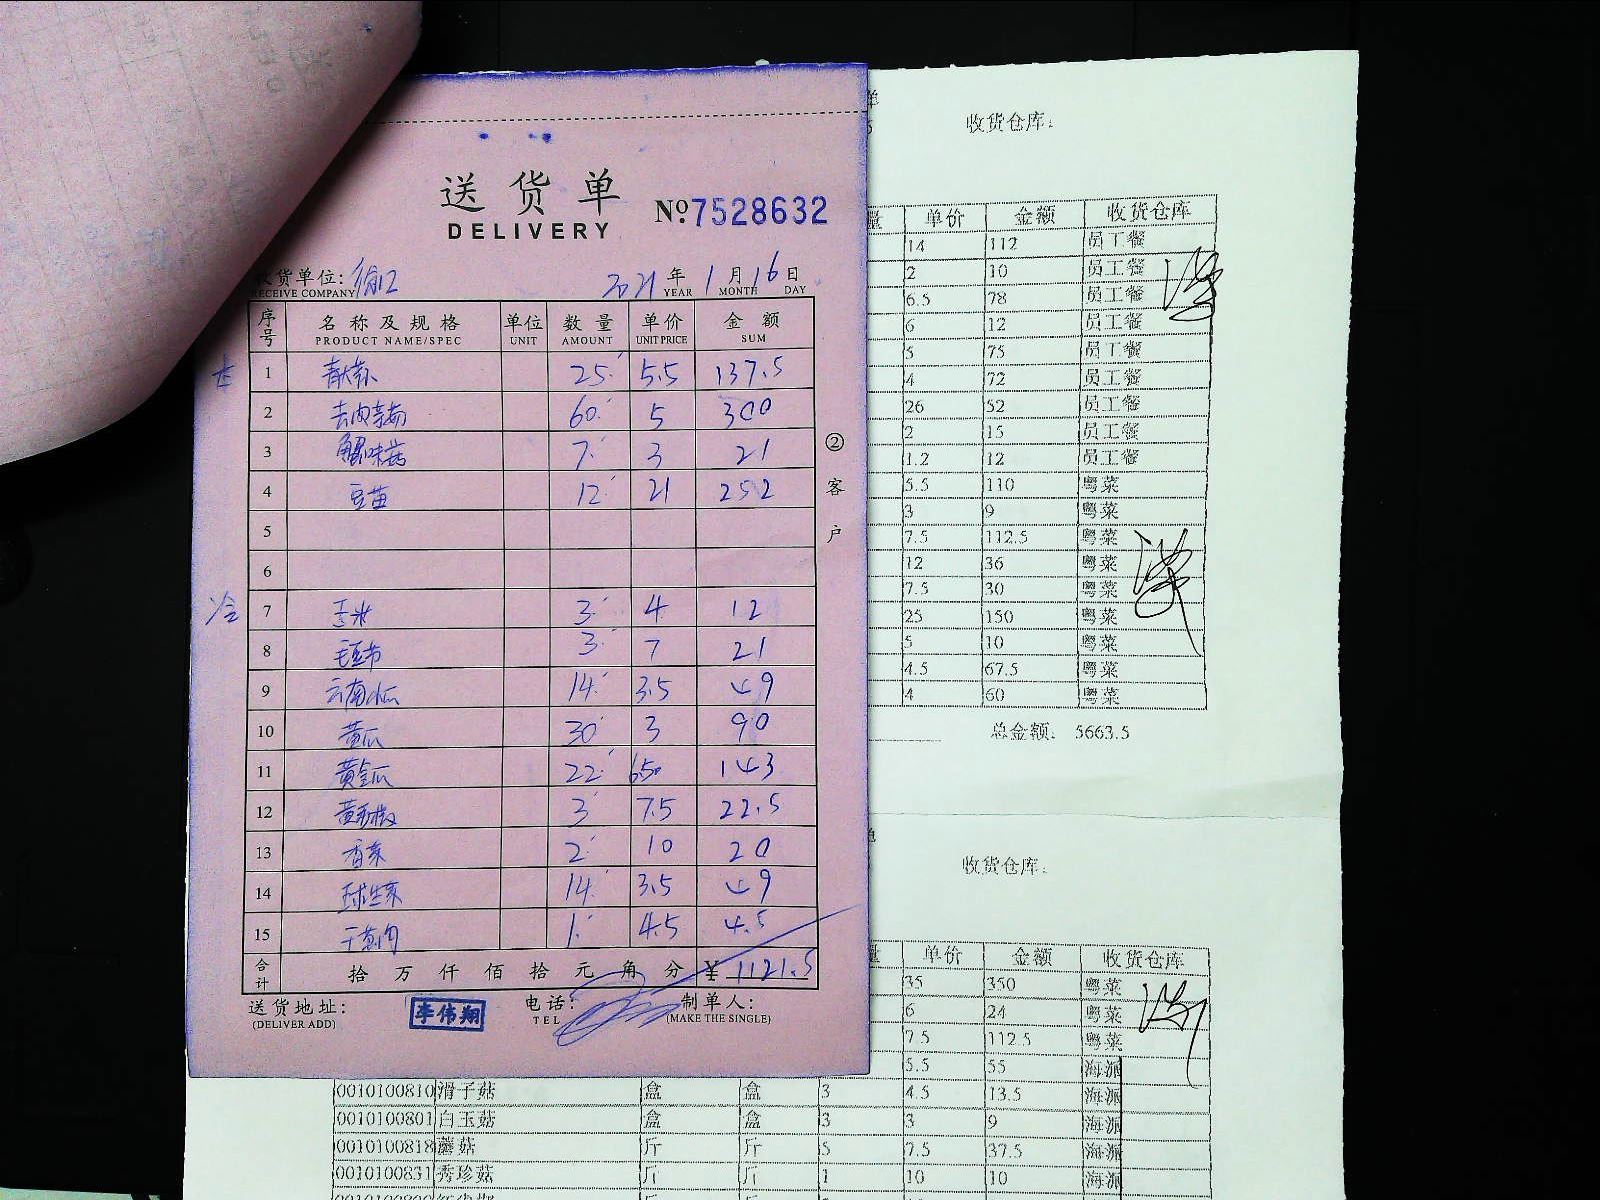 送货单
DELIVERY
№7528632
收货单位:
RECEIVE COMPANY
2021 年 1 月 16 日
YEAR MONTH DAY
序号 名称及规格 单位 数量 单价 金额
PRODUCT NAME/SPEC UNIT AMOUNT UNIT PRICE SUM
1 25 5.5 137.5
2 60 5 300
3 蟹味菇 7 3 21
4 豆苗 12 21 252
5
6
冷
7 玉米 3 4 12
8 毛豆节 3 7 21
9 云南小瓜 14 3.5 49
10 黄瓜 30 3 90
11 黄金瓜 22 6.50 143
12 黄彩椒 3 7.5 22.5
13 香菜 2 10 20
14 球生菜 14 3.5 49
15 干葱肉 1 4.5 4.5
合计 拾 万 仟 佰 拾 元 角 分 ¥ 1121.5
送货地址: 李伟翔 电话: 制单人:
(DELIVER ADD) TEL (MAKE THE SINGLE)
② 客户
单
收货仓库:
量 单价 金额 收货仓库
14 112 员工餐
2 10 员工餐
6.5 78 员工餐
6 12 员工餐
5 75 员工餐
4 72 员工餐
26 52 员工餐
2 15 员工餐
1.2 12 员工餐
5.5 110 粤菜
3 9 粤菜
7.5 112.5 粤菜
12 36 粤菜
7.5 30 粤菜
25 150 粤菜
5 10 粤菜
4.5 67.5 粤菜
4 60 粤菜
总金额: 5663.5
单
收货仓库:
量 单价 金额 收货仓库
35 350 粤菜
6 24 粤菜
7.5 112.5 粤菜
5.5 55 海派
0010100810 滑子菇 盒 盒 3 4.5 13.5 海派
0010100801 白玉菇 盒 盒 3 3 9 海派
0010100818 蘑菇 斤 斤 5 7.5 37.5 海派
0010100831 秀珍菇 斤 斤 1 10 10 海派